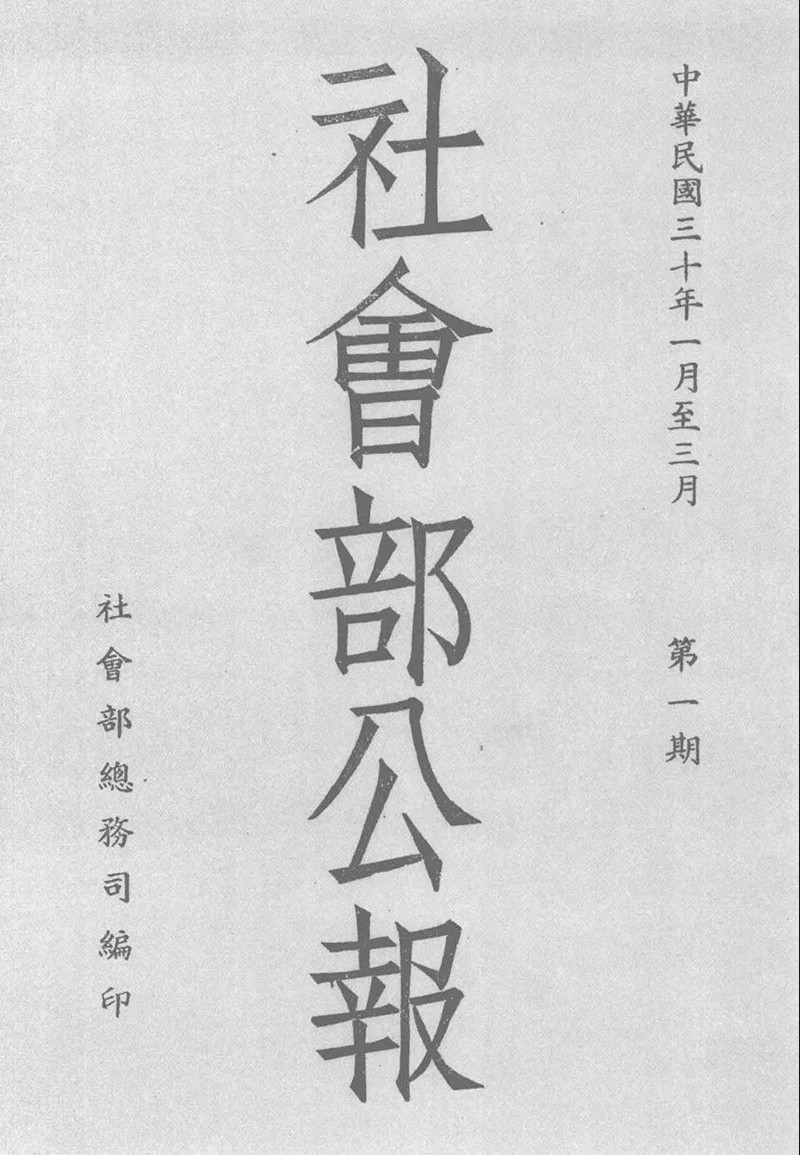 中華民國三十年一月至三月　第一期
社會部公報
社會部總務司編印